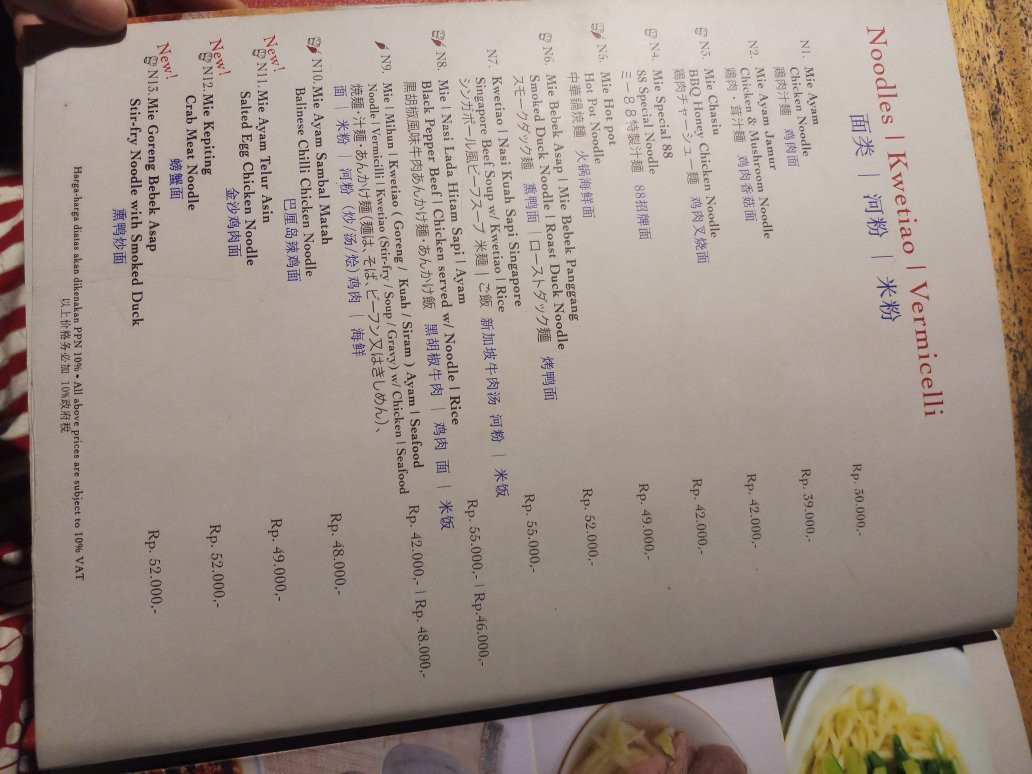 Noodles | Kwetiao | Vermicelli
面类 | 河粉 | 米粉
N1. Mie Ayam Rp. 30.000,-
Chicken Noodle
鶏肉汁麺 鸡肉面
N2. Mie Ayam Jamur Rp. 39.000,-
Chicken & Mushroom Noodle
鶏肉・茸汁麺 鸡肉香菇面
N3. Mie Chasiu Rp. 42.000,-
BBQ Honey Chicken Noodle
鶏肉チャーシュー麺 鸡肉叉烧面
N4. Mie Special 88 Rp. 42.000,-
88 Special Noodle
ミー88特製汁麺 88招牌面
N5. Mie Hot pot Rp. 49.000,-
Hot Pot Noodle
中華鍋焼麺 火锅海鲜面
N6. Mie Bebek Asap | Mie Bebek Panggang Rp. 52.000,-
Smoked Duck Noodle | Roast Duck Noodle
スモークダック麺 熏鸭面 | ローストダック麺 烤鸭面
N7. Kwetiao | Nasi Kuah Sapi Singapore Rp. 55.000,-
Singapore Beef Soup w/ Kwetiao | Rice
シンガポール風ビーフスープ 米麺 | ご飯 新加坡牛肉汤 河粉 | 米饭
N8. Mie | Nasi Lada Hitam Sapi | Ayam Rp. 55.000,- | Rp.46.000,-
Black Pepper Beef | Chicken served w/ Noodle | Rice
黒胡椒風味牛肉あんかけ麺・あんかけ飯 黑胡椒牛肉 | 鸡肉 面 | 米饭
N9. Mie | Mihun | Kwetiao ( Goreng / Kuah / Siram ) Ayam | Seafood Rp. 42.000,- | Rp. 48.000,-
Noodle | Vermicilli | Kwetiao (Stir-fry / Soup / Gravy) w/ Chicken | Seafood
焼麺・汁麺・あんかけ麺(麺は、そば、ビーフン又はきしめん)、
面 | 米粉 | 河粉 (炒/汤/烩)鸡肉 | 海鲜
N10. Mie Ayam Sambal Matah Rp. 48.000,-
Balinese Chilli Chicken Noodle
巴厘岛辣鸡面
New!
N11. Mie Ayam Telur Asin Rp. 49.000,-
Salted Egg Chicken Noodle
金沙鸡肉面
New!
N12. Mie Kepiting Rp. 52.000,-
Crab Meat Noodle
螃蟹面
New!
N13. Mie Goreng Bebek Asap Rp. 52.000,-
Stir-fry Noodle with Smoked Duck
熏鸭炒面
Harga-harga diatas akan dikenakan PPN 10% • All above prices are subject to 10% VAT
以上价格务必加 10%政府税